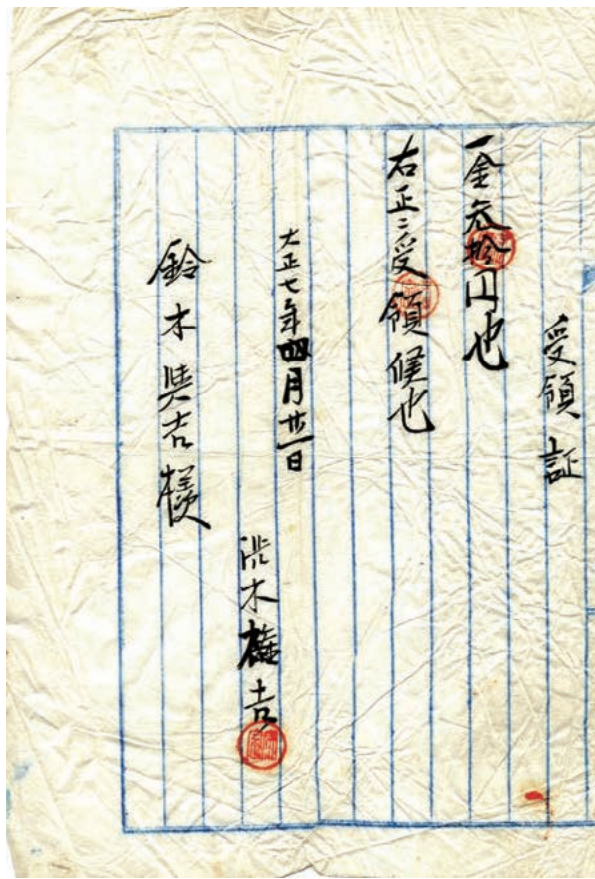 受領証
一金参拾円也
右正ニ受領候也
大正七年四月廿一日
木権吉
鈴木與吉様